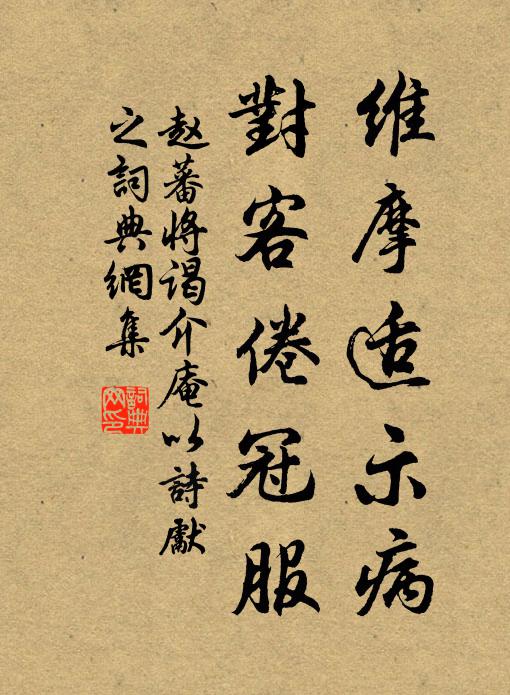 維摩适示病
對客倦冠服
赵蕃将谒介庵以詩獻
之詞典網集
詞典